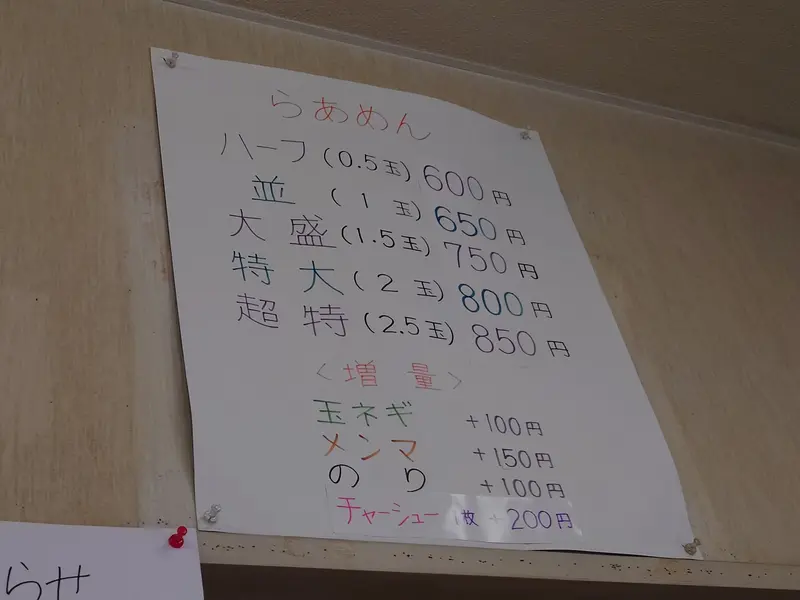 らあめん
ハーフ(0.5玉) 600円
並(1玉) 650円
大盛(1.5玉) 750円
特大(2玉) 800円
超特(2.5玉) 850円
〈増量〉
玉ネギ +100円
メンマ +150円
のり +100円
チャーシュー 1枚 +200円
らせ